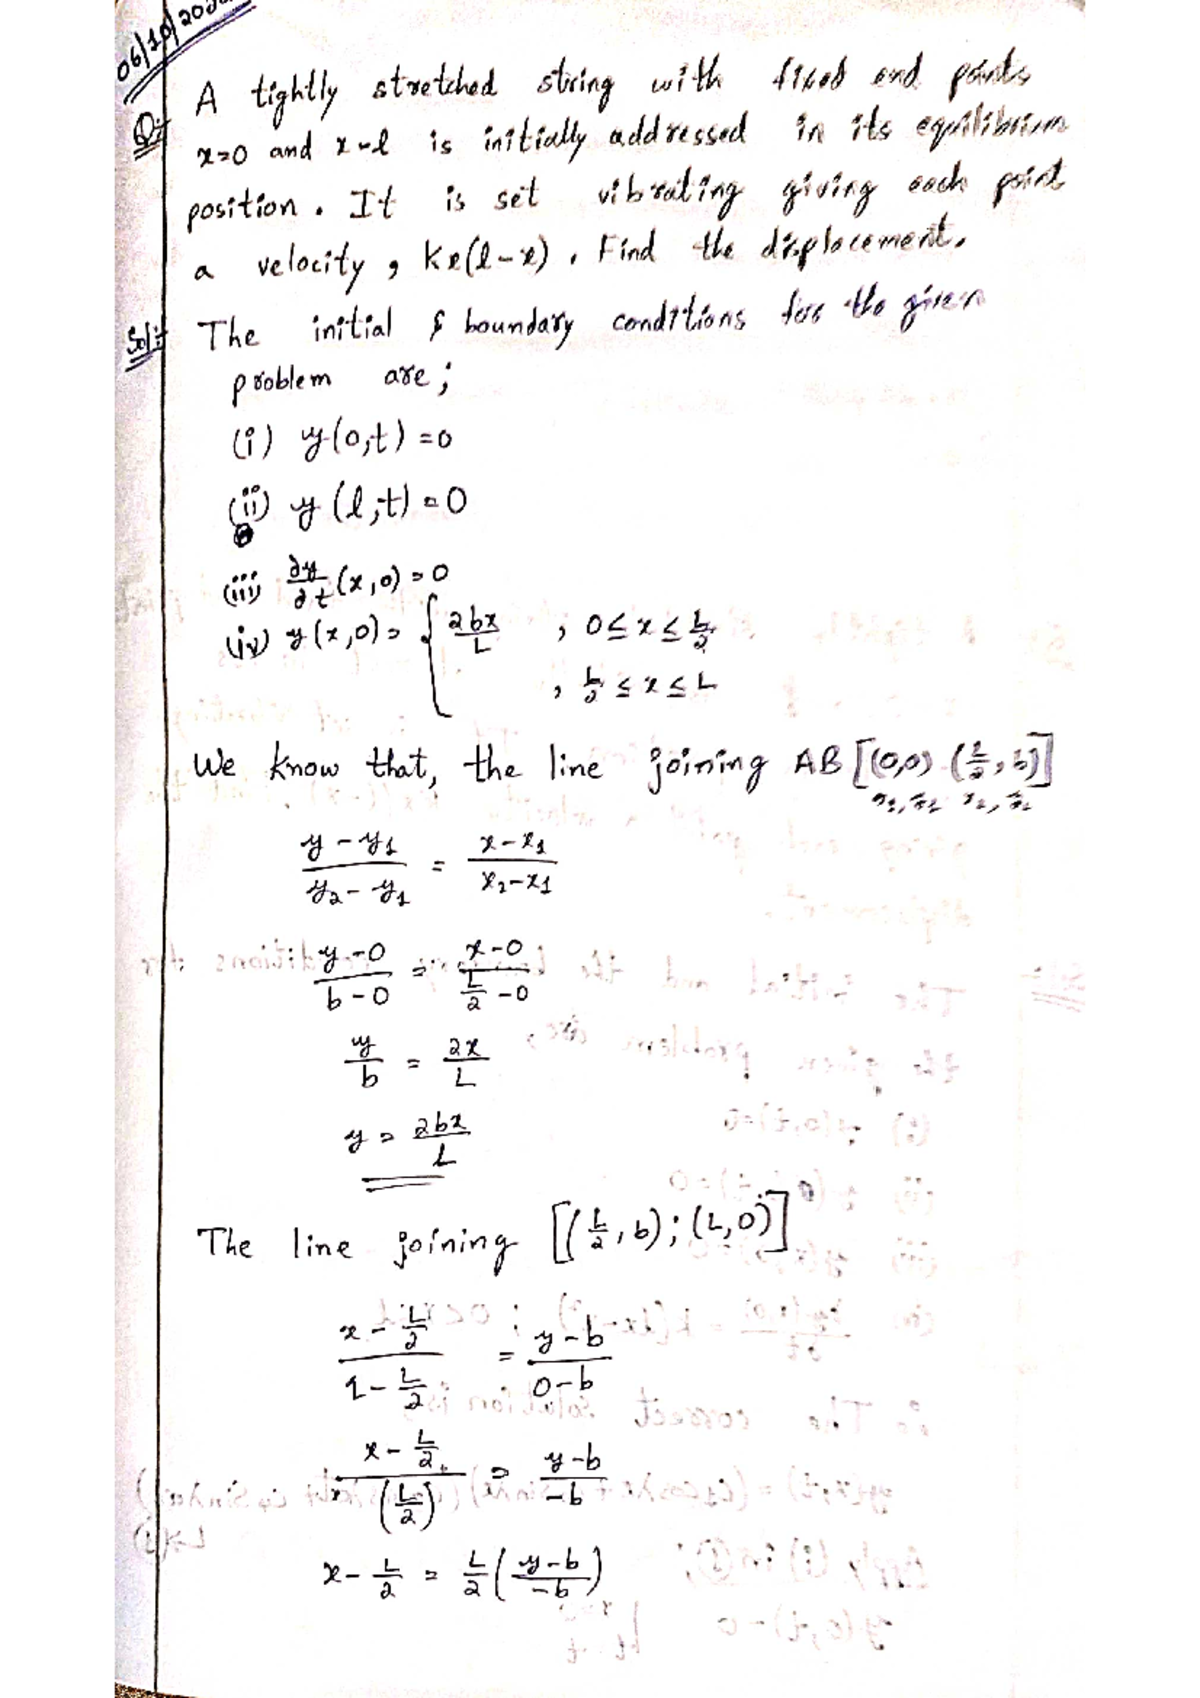 06/10/20
Q:- A tightly stretched string with fixed end points
x=0 and x=l is initially addressed in its equilibrium
position. It is set vibrating giving each point
a velocity, kx(l-x). Find the displacement.
Sol:- The initial & boundary conditions for the given
problem are;
(i) y(0,t) = 0
(ii) y(l,t) = 0
(iii) ∂y/∂t (x,0) = 0
(iv) y(x,0) = { 2bx/L , 0≤x≤L/2
, L/2 ≤ x ≤ L
We know that, the line joining AB [(0,0) (L/2, b)]
x₁, y₁ x₂, y₂
(y-y₁)/(y₂-y₁) = (x-x₁)/(x₂-x₁)
(y-0)/(b-0) = (x-0)/(L/2-0)
y/b = 2x/L
y = 2bx/L
The line joining [(L/2, b); (L,0)]
(x-L/2)/(1-L/2) = (y-b)/(0-b)
(x-L/2)/(L/2) = (y-b)/-b
x-L/2 = L/2 ((y-b)/-b)